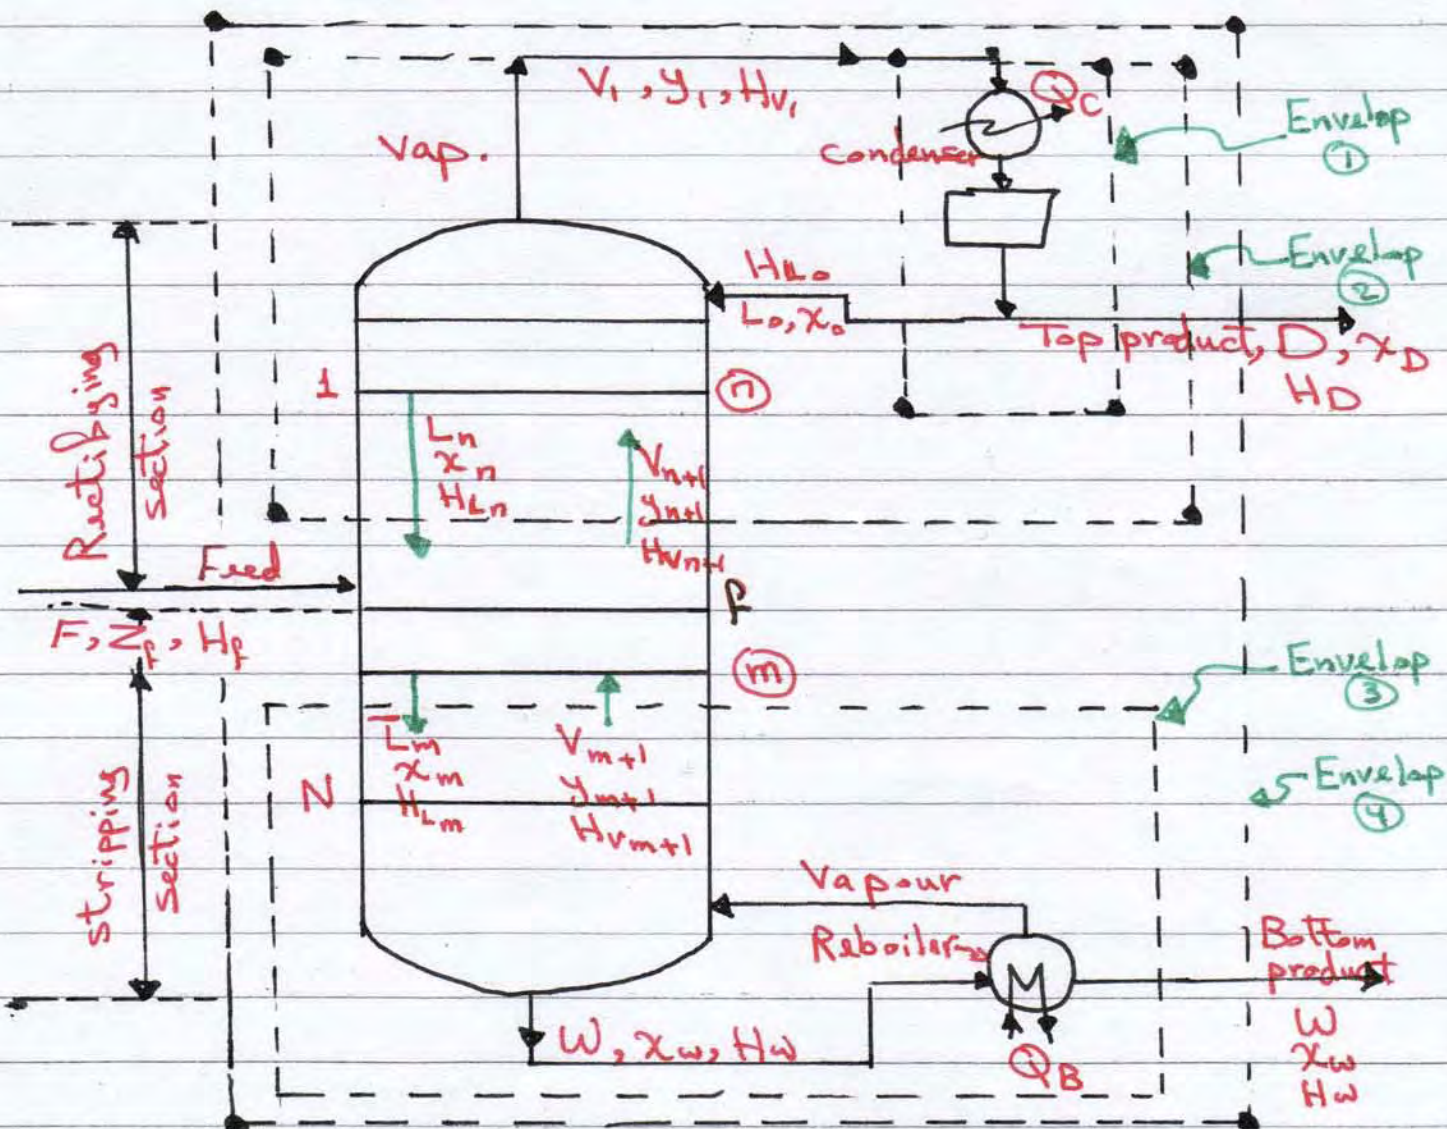 V₁, y₁, H_V₁
Q_C
Envelop
①
Vap.
Condenser
Envelop
②
H_L₀
L₀, x₀
Top product, D, x_D
H_D
Rectifying
section
1
ⓝ
L_n
x_n
H_Ln
V_n+1
y_n+1
H_Vn+1
Feed
f
F, Z_f, H_f
ⓜ
Envelop
③
L̅_m
x_m
H_Lm
V_m+1
y_m+1
H_Vm+1
Envelop
④
stripping
section
N
Vapour
Reboiler
Bottom
product
W, x_w, H_w
Q_B
W
x_w
H_w